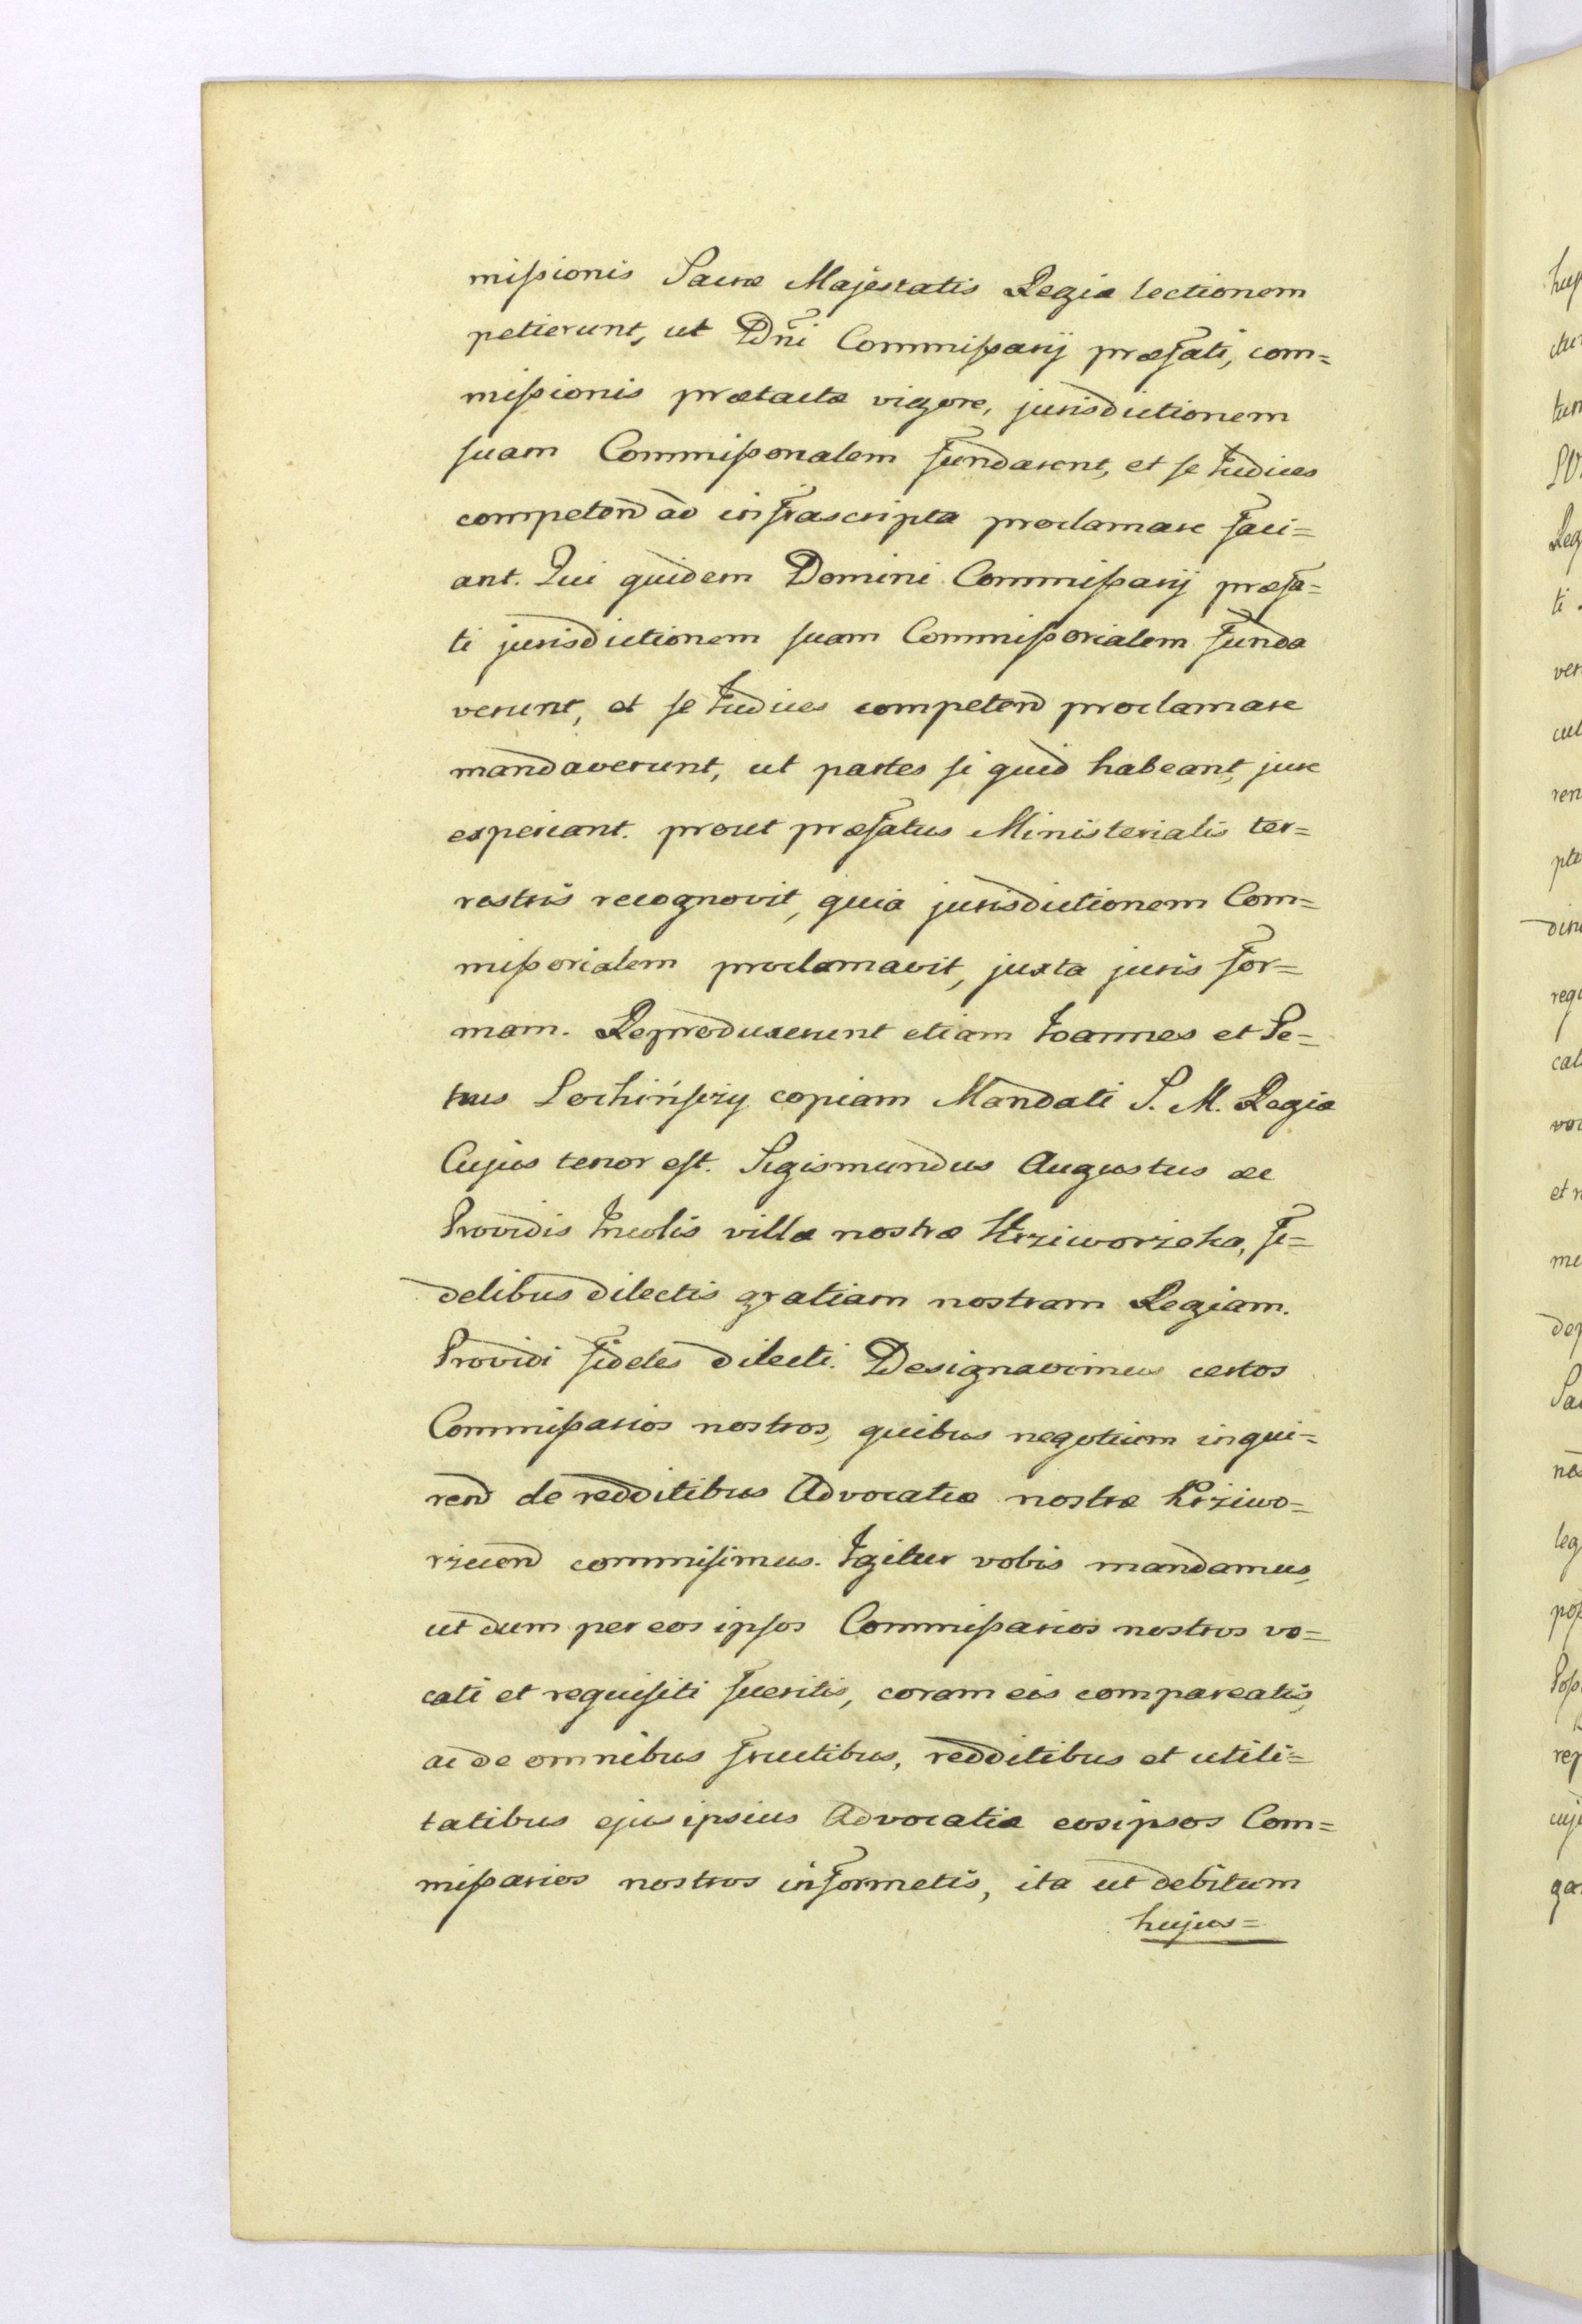 missionis Sacræ Majestatis Regiæ lectionem
petierunt, ut Dñi Commissarij præfati, com=
missionis prætactæ vigore, jurisdictionem
suam Commissionalem fundarent, et se Iudices
competen̄ ad infrascripta proclamare faci=
ant. Qui quidem Domini Commissarij præfa=
ti jurisdictionem suam Commissorialem funda
verunt, et se Iudices competen̄ proclamare
mandaverunt, ut partes si quid habeant, jure
experiant. prout præfatus Ministerialis ter=
restris recognovit, quia jurisdictionem Com=
missorialem proclamavit, juxta juris for=
mam. Reproduxerunt etiam Ioannes et Pe=
trus Lochińsczy copiam Mandati S. M. Regiæ
Cujus tenor est. Sigismundus Augustus &c
Providis Incolis villæ nostræ Krziworzeka, fi=
delibus dilectis gratiam nostram Regiam.
Providi fideles dilecti. Designavimus certos
Commissarios nostros, quibus negotium inqui=
ren̄ de redditibus Advocatiæ nostræ Krziwo=
rzecen̄ commisimus. Igitur vobis mandamus,
ut dum per eos ipsos Commissarios nostros vo=
cati et requisiti fueritis, coram eis compareatis,
ac de omnibus fructibus, redditibus et utili=
tatibus ejus ipsius Advocatiæ eos ipsos Com=
missarios nostros informetis, ita ut debitum
hujus=